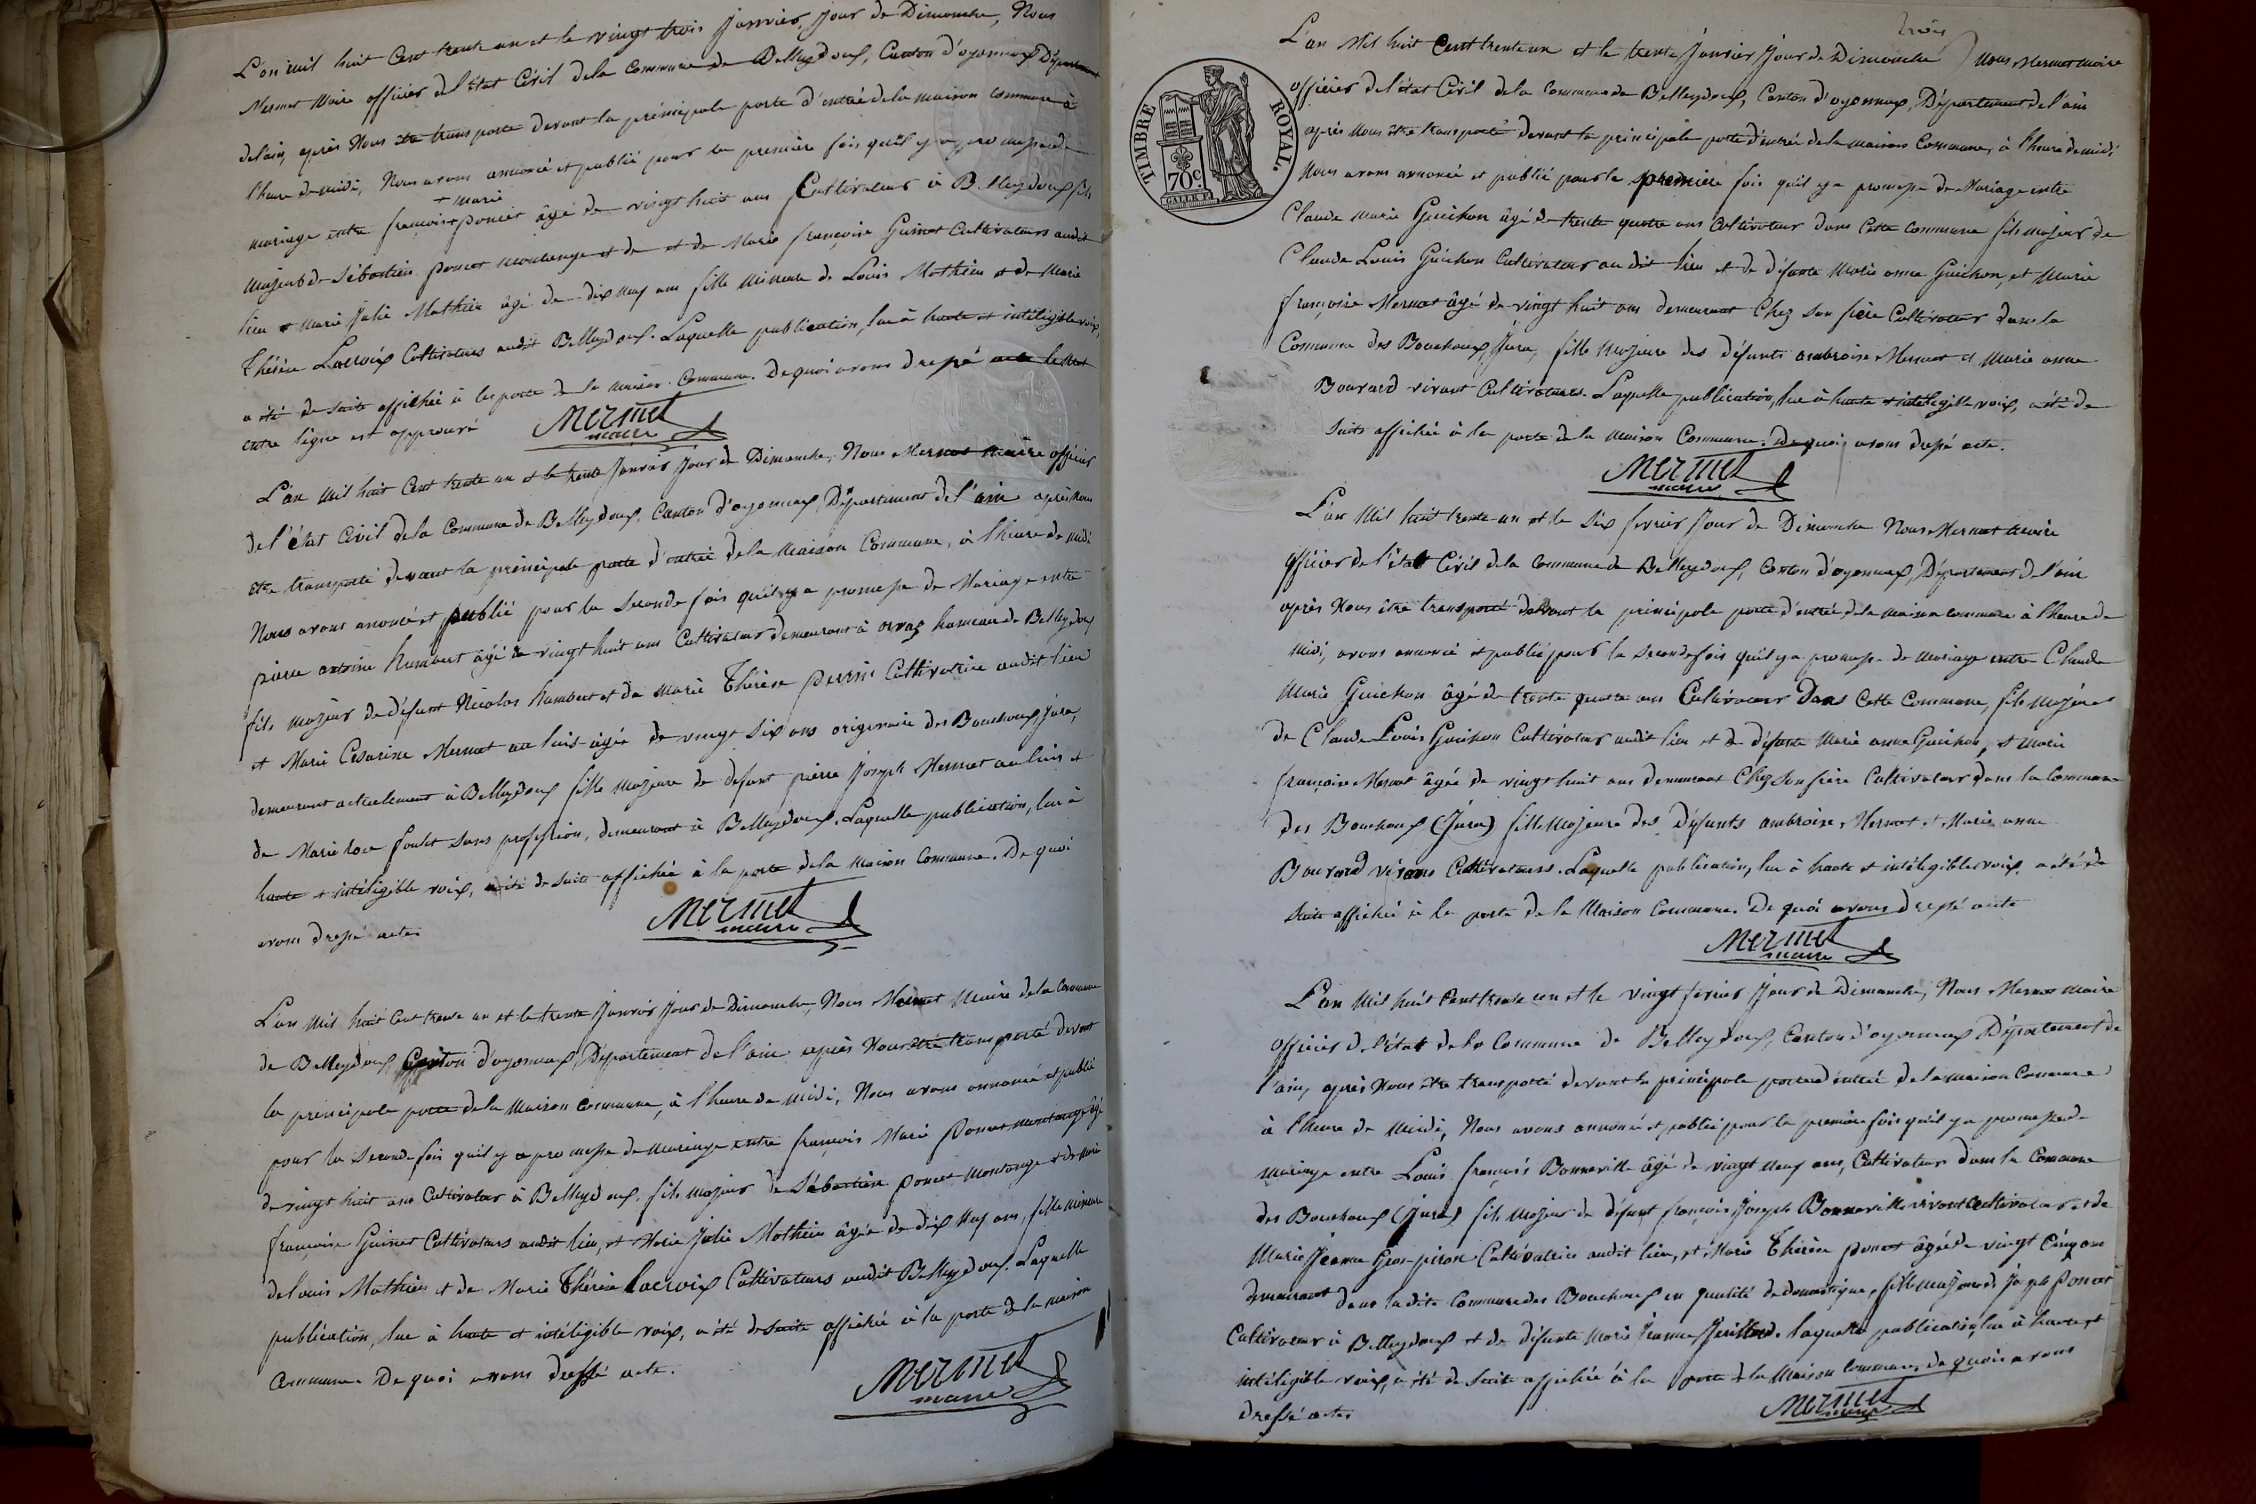 L'an mil huit Cent trente un et le vingt trois Janvier, Jour de Dimanche, Nous
Mermet Maire officier del'Etat Civil dela Commune de Belleydoux, Canton d'oyonnax Département
delain, après Nous être transporté devant la principale porte d'entrée dela maison commune à
l'heure de midi, Nous avons annoncé et publié pour la première fois qu'il y a promesse de
+ marie
mariage entre françois + poncet âgé de vingt huit ans Cultivateur à Belleydoux fils
majeur de Sébastien poncet montange et de et de Marie françoise Guinet Cultivateurs audit
lieu et Marie Julie Mathieu âgé de dix neuf ans fille Mineure de Louis Mathieu et de Marie
Thérèse Lacroix Cultivateurs audit Belleydoux. Laquelle publication, lue à haute et intéligible voix,
a été de suite affichée à la porte de la maison Commune. De quoi avons dressé acte le mot
entre ligne est approuvé
Mermet
maire
L'an Mil huit Cent trente un et le trente Janvier Jour de Dimanche, Nous Mermet maire officier
del'état Civil dela Commune de Belleydoux, Canton d'oyonnax, Département del'ain après nous
être transporté devant la principale porte d'entrée dela Maison Commune, à l'heure de midi
Nous avons anoncé et publié pour la seconde fois qu'il y a promesse de Mariage entre
pierre antoine humbert âgé de vingt huit ans Cultivateur demeurant à orvaz hameau de Belleydoux
fils majeur de défunt Nicolas humbert et de Marie Thérèse perrin Cultivatrice audit lieu
et Marie Césarine Mermet au luis âgée de vingt six ans originaire des Bouchoux, Jura,
demeurant actuellement à Belleydoux fille majeure de defunt pierre Joseph Mermet au luis et
de Marie Rose foulet sans profession, demeurant à Belleydoux. Laquelle publication, lue à
haute et intéligible voix, a été de suite affichée à la porte dela maison Commune. De quoi
avons dressé acte.
Mermet
maire
L'an Mil huit Cent trente un et le trente Janvier Jour de Dimanche, Nous Mermet Maire dela Commune
de Belleydoux Canton d'oyonnax, Département de l'ain après Nous être transporté devant
la principale porte dela Maison Commune, à l'heure de midi, Nous avons annoncé et publié
pour la seconde fois qu'il y a promesse de mariage entre françois Marie Poncet montange âgé
de vingt huit ans Cultivateur à Belleydoux, fils majeur de Sébastien poncet montange et de Marie
françoise Guinet Cultivateurs audit lieu, et Marie Julie Mathieu âgée de dix neuf ans, fille mineure
de louis Mathieu et de Marie Thérèse lacroix Cultivateurs audit Belleydoux. Laquelle
publication, lue à haute et intéligible voix, a été de suite affichée à la porte de la maison
Commune. De quoi avons dressé acte.
Mermet
maire
trois
L'an Mil huit Cent trente un et le trente Janvier Jour de Dimanche Nous Mermet maire
officier del'état Civil dela Commune de Belleydoux, Canton d'oyonnax, Département de l'ain
après Nous être transporté devant la principale porte d'entrée dela maison Commune, à l'heure de midi
Nous avons annoncé et publié pour la première fois qu'il y a promesse de Mariage entre
Claude Marie Guichon âgé de trente quatre ans Cultivateur dans cette commune fils majeur de
Claude Louis Guichon Cultivateur audit lieu et de défunte Marie anne Guichon, et Marie
françoise Mermet âgé de vingt huit ans demeurant Chez son frère Cultivateur dans la
Commune des Bouchoux, Jura, fille Majeure des défunts ambroise Mermet et Marie anne
Bourard vivant Cultivateurs. Laquelle publication, lue à haute et intéligible voix, a été de
suite affichée à la porte de la Maison Commune. De quoi avons dressé acte.
TIMBRE ROYAL.
70c.
Mermet
maire
L'an Mil huit trente un et le Six fevrier Jour de Dimanche Nous Mermet maire
officier de l'état Civil dela Commune de Belleydoux, Canton d'oyonnax, Département de l'ain
après Nous être transporté devant la principale porte d'entrée dela maison commune à l'heure de
midi, avons annoncé et publié pour la seconde fois qu'il y a promesse de mariage entre Claude
Marie Guichon âgé de trente quatre ans Cultivateur Dans cette Commune, fils Majeur
de Claude Louis Guichon Cultivateur audit lieu et de défunte Marie anne Guichon, et Marie
françoise Mermet âgée de vingt huit ans demeurant Chez son frère Cultivateur dans la Commune
des Bouchoux (Jura) fille Majeure des défunts ambroise Mermet et Marie anne
Bourard vivans Cultivateurs. Laquelle publication, lue à haute et intéligible voix, a été de
suite affichée à la porte de la Maison Commune. De quoi avons dressé acte
Mermet
maire
L'an Mil huit Cent trente un et le vingt fevrier Jour de Dimanche, Nous Mermet maire
officier de l'état de la Commune de Belleydoux, Canton d'oyonnax Département de
l'ain, après Nous être transporté devant la principale porte d'entrée dela maison Commune
à l'heure de Midi, Nous avons annoncé et publié pour la première fois qu'il y a promesse de
mariage entre Louis françois Bonneville âgé de vingt neuf ans, Cultivateur dans la Commune
des Bouchoux (Jura) fils Majeur de défunt françois Joseph Bonneville vivant Cultivateur et de
Marie Jeanne Gros-piron Cultivatrice audit lieu, et Marie Thérèse poncet âgée de vingt Cinq ans
demeurant dans ladite Commune des Bouchoux en qualité de domestique, fille majeure de Joseph Poncet
Cultivateur à Belleydoux et de défunte Marie Jeanne . Laquelle publication, lue à haute et
intéligible voix, a été de suite affichée à la porte de la Maison Commune, de quoi avons
dressé acte.
Mermet
maire